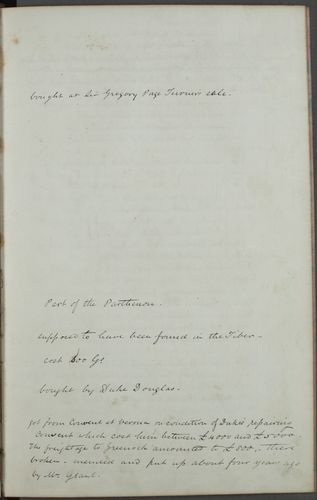 bought at Sir Gregory Page Turner's sale.
Part of the Parthenon.
supposed to have been found in the Tiber.
cost 800 Gs
bought by Duke Douglas.
got from Convent at Verona on condition of Duke's repairing
Convent which cost him between £4000 and £5000.
The freightage to Greenock amounted to £500, there
broken - mended and put up about four years ago
by Mr. Grant.